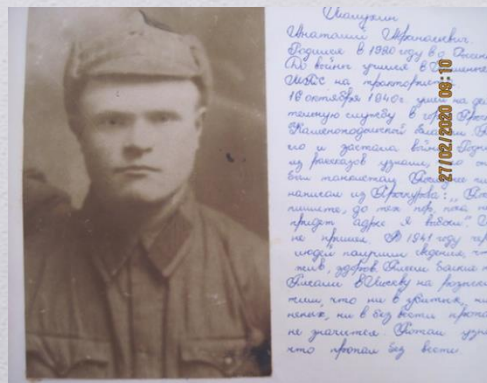 Шалухин
Анатолий Афанасьевич.
Родился в 1920 году в д. Россе
До войны учился в
МТС на тракториста
16 октября 1940г. ушел на дей
тельную службу в город Проск
Каменецподольской области. Т
его и застала война. Родн
из рассказов узнали, что он
был танкистом. Последнее пи
написал из Проскурова: „
пишите, до тех пор, пока не
придет адрес я выбыл". П
не пришел. В 1941 году чер
людей получили сведения, чт
жив, здоров. Писем больше н
Писали в Москву на розыски
тили, что ни в убитых, ни
неных, ни в без вести пропа
не значится. Потом узна
что пропал без вести.
27/02/2020 09:10